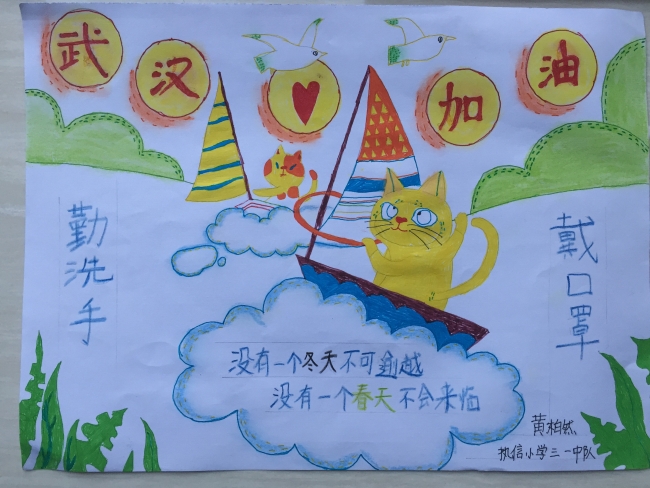 武汉加油
勤洗手
戴口罩
没有一个冬天不可逾越
没有一个春天不会来临
黄柏然
执信小学三一中队